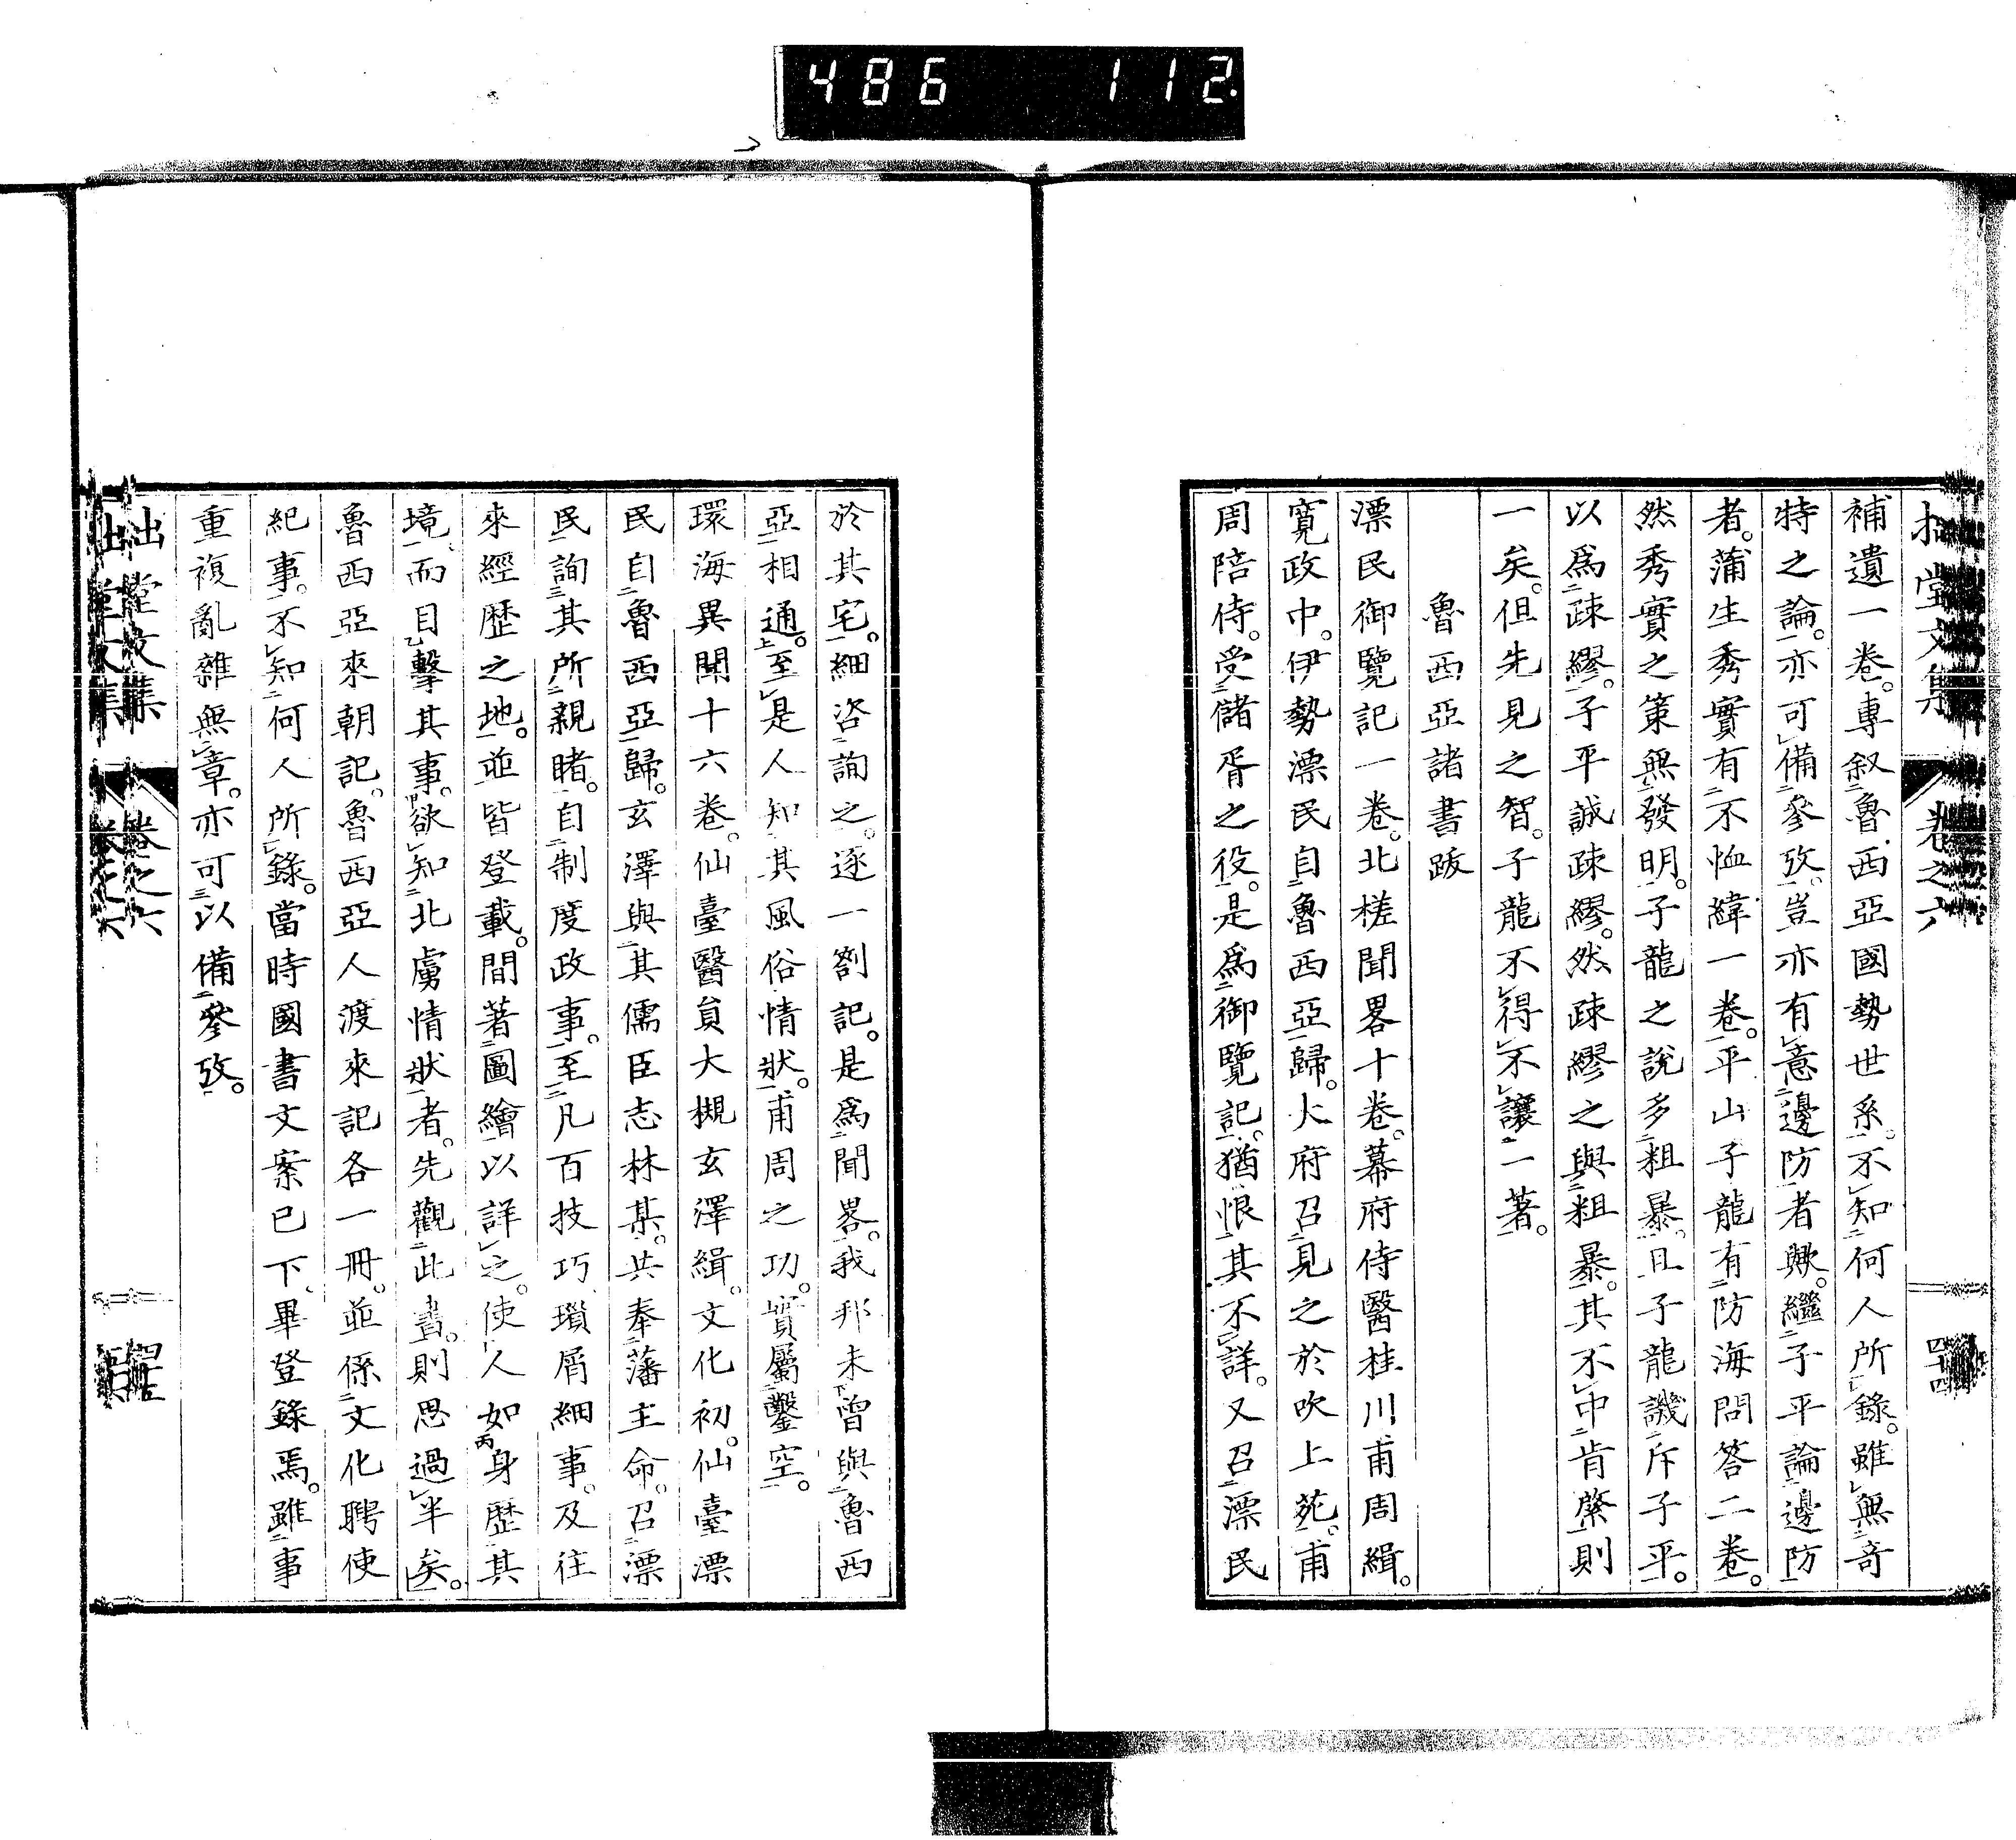 486 112
拙堂文集 卷之六 四十四
補遺一卷。專叙魯西亞國勢世系。不知何人所錄。雖無奇
特之論。亦可備參攷。豈亦有意邊防者歟。繼子平論邊防
者。蒲生秀實有不恤緯一卷。平山子龍有防海問答二卷。
然秀實之策無發明。子龍之說多粗暴。且子龍譏斥子平。
以爲疎繆。子平誠疎繆。然疎繆之與粗暴。其不中肯綮則
一矣。但先見之智。子龍不得不讓一著。
魯西亞諸書跋
漂民御覽記一卷。北槎聞畧十卷。幕府侍醫桂川甫周緝。
寬政中。伊勢漂民自魯西亞歸。大府召見之於吹上苑。甫
周陪侍。受儲胥之役。是爲御覽記。猶恨其不詳。又召漂民
於其宅。細咨詢之。逐一劄記。是爲聞畧。我邦未曾與魯西
亞相通。至是人知其風俗情狀。甫周之功。實屬鑿空。
環海異聞十六卷。仙臺醫員大槻玄澤緝。文化初。仙臺漂
民自魯西亞歸。玄澤與其儒臣志林某。共奉藩主命。召漂
民詢其所親睹。自制度政事。至凡百技巧瑣屑細事。及往
來經歷之地。並皆登載。間著圖繪以詳之。使人如身歷其
境、而目擊其事。欲知北虜情狀者。先觀此書。則思過半矣。
魯西亞來朝記。魯西亞人渡來記各一冊。並係文化聘使
紀事。不知何人所錄。當時國書文案已下、畢登錄焉。雖事
重複亂雜無章。亦可以備參攷。
拙堂文集 卷之六